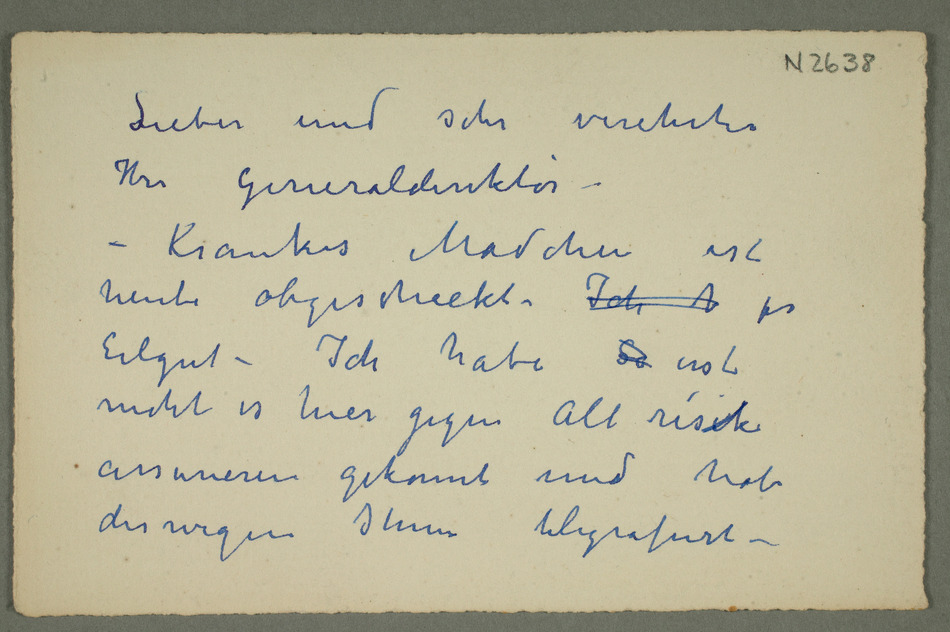 N2638
Lieber und sehr verehrter
Herr Generaldirektor -
- Krankes Mädchen ist
heute abgeschickt - Ich h per
Eilgut - Ich habe So erst
nicht es hier gegen All risik
assurieren gekonnt und habe
deswegen Ihnen telegrafiert -